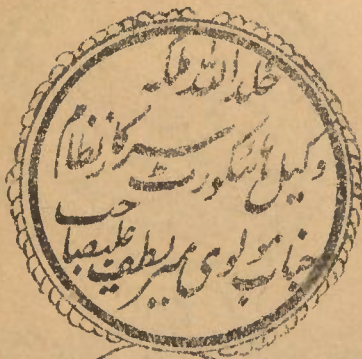 خلد اللہ ملکہ
وکیل ہائیکورٹ سرکار نظام
جناب مولوی میر لطیف علیصاحب